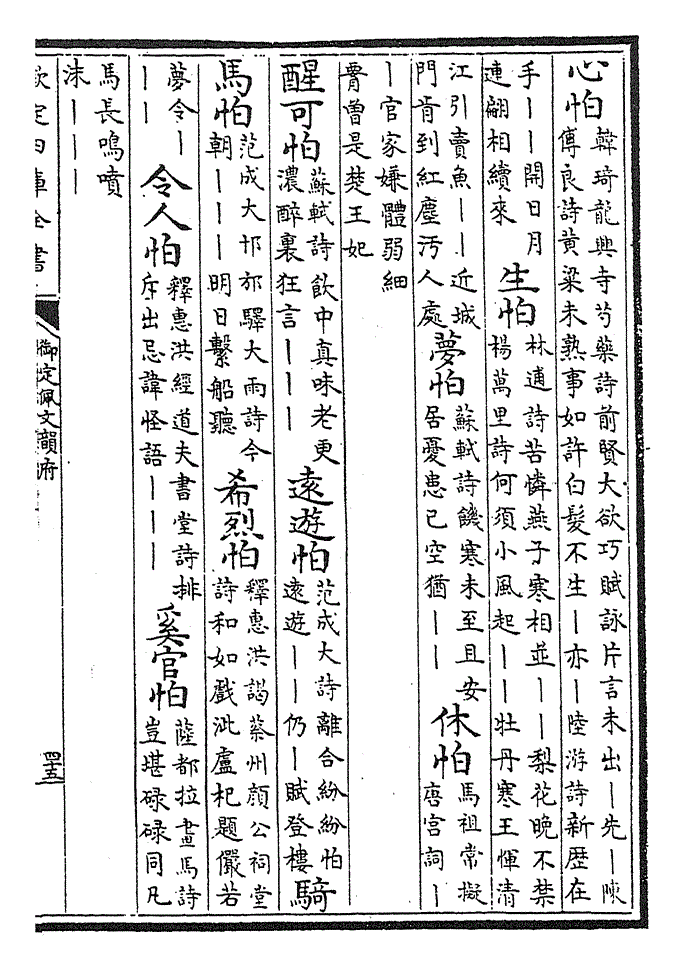 心怕
韓琦龍興寺芍藥詩前賢大欲巧賦詠片言未出｜先｜陳
傅良詩黄粱未熟事如許白髮不生｜亦｜陸游詩新歴在
手｜｜開日月
連翩相續來
生怕
林逋詩苦憐燕子寒相並｜｜梨花晚不禁
楊萬里詩何須小風起｜｜牡丹寒王惲清
江引賣魚｜｜近城
門肯到紅塵汚人處
夢怕
蘇軾詩饑寒未至且安
居憂患已空猶｜｜
休怕
馬祖常擬
唐宫詞｜
｜官家嫌體弱細
胷曾是楚王妃
醒可怕
蘇軾詩飲中真味老更
濃醉裏狂言｜｜｜
遠遊怕
范成大詩離合紛紛怕
遠遊｜｜仍｜賦登樓
騎
馬怕
范成大邗邡驛大雨詩今
朝｜｜｜明日繫船聽
希烈怕
釋惠洪謁蔡州顔公祠堂
詩和如戲泚盧杞題儼若
夢令｜
｜｜
令人怕
釋惠洪經道夫書堂詩排
斥出忌諱怪語｜｜｜
奚官怕
薩都拉畫馬詩
豈堪碌碌同凡
馬長鳴噴
沫｜｜｜
欽定四庫全書
御定佩文韻府
四十五